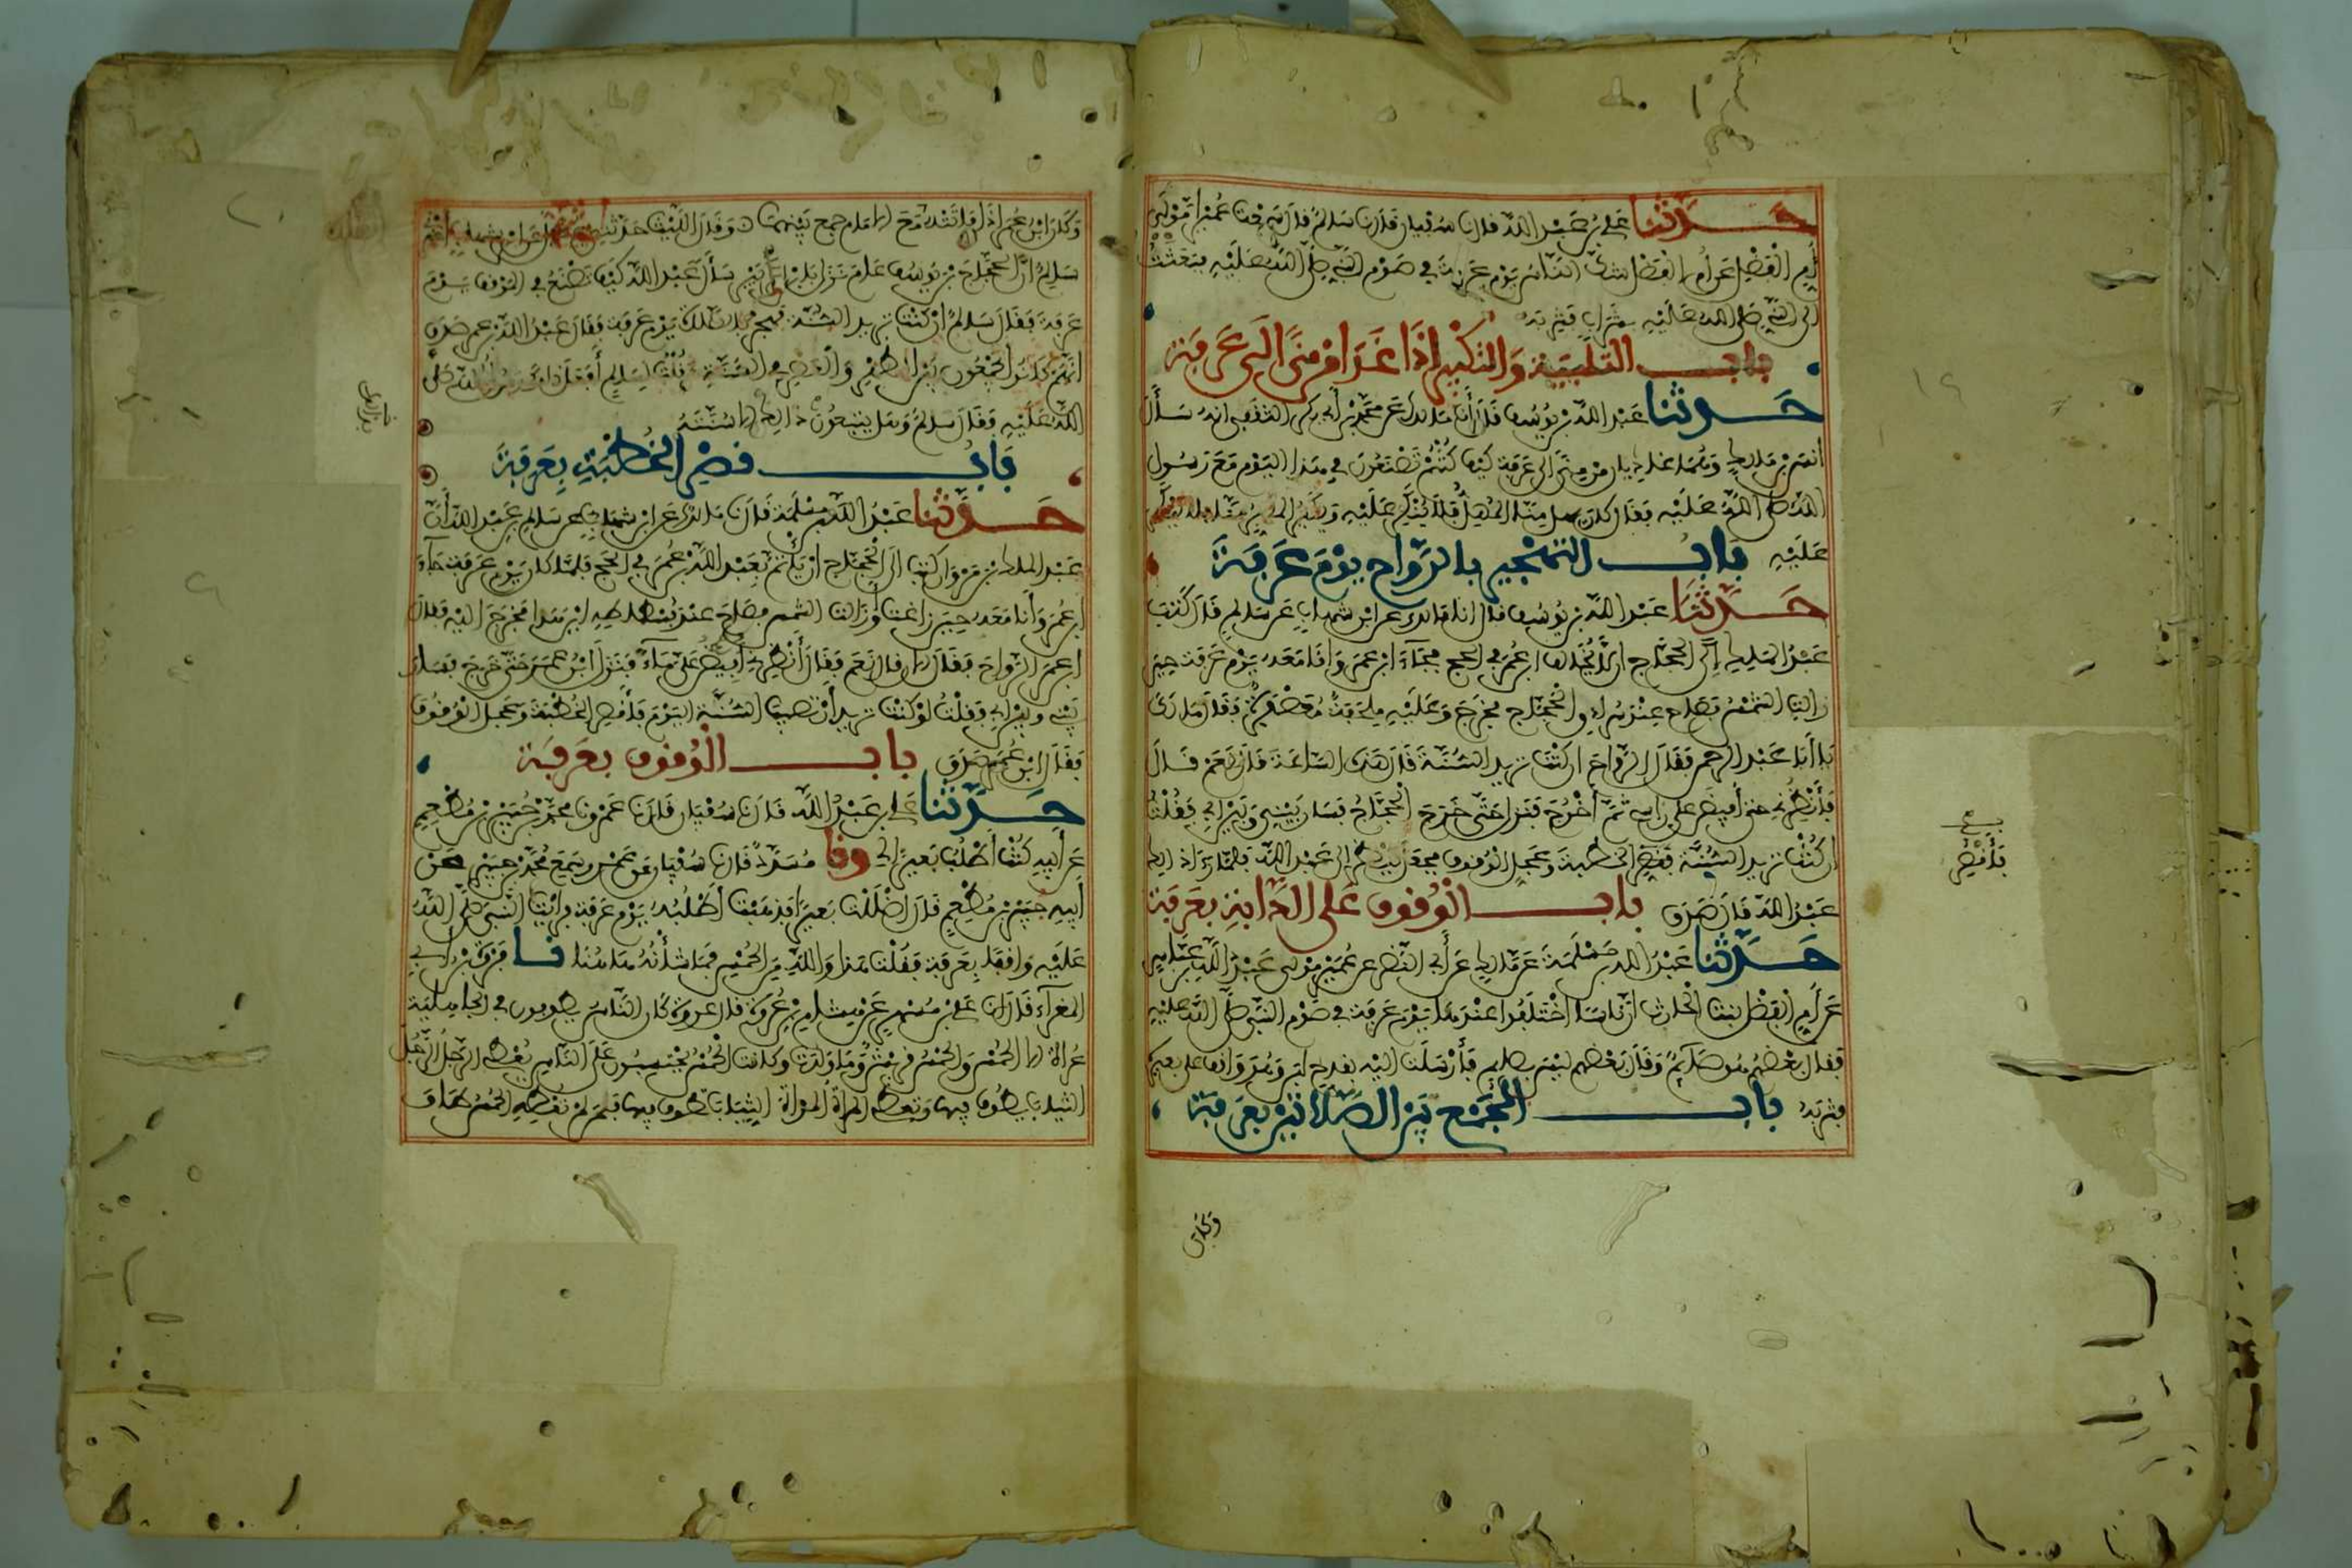 حدثنا علي بن عبد الله قال نا سفيان قال نا سالم قال سمعت عميرا مولى
أم الفضل عن أم الفضل شك الناس يوم عرفة في صوم النبي صلى الله عليه فبعثت
الى النبي صلى الله عليه بشراب فشربه
باب التلبية والتكبير اذا غدا من منى الى عرفة
حدثنا عبد الله بن يوسف قال أنا مالك عن محمد بن أبي بكر الثقفي انه سأل
أنس بن مالك وهما غاديان من منى الى عرفة كيف كنتم تصنعون في هذا اليوم مع رسول
الله صلى الله عليه فقال كان يهل منا المهل فلا ينكر عليه ويكبر المكبر منا فلا ينكر
عليه باب التهجير بالرواح يوم عرفة
حدثنا عبد الله بن يوسف قال انا مالك عن ابن شهاب عن سالم قال كتب
عبد الملك إلى الحجاج ان لا يخالف ابن عمر في الحج فجاء ابن عمر وانا معه يوم عرفة حين
زالت الشمس فصاح عند سرادق الحجاج فخرج وعليه ملحفة معصفرة فقال مالك
يا أبا عبد الرحمن فقال الرواح ان كنت تريد السنة قال هذه الساعة قال نعم قال
فأنظرني حتى أفيض على راسي ثم أخرج فنزل حتى خرج الحجاج فسار بيني وبين ابي فقلت
ان كنت تريد السنة فاقصر الخطبة وعجل الوقوف فجعل ينظر الى عبد الله فلما رأى ذلك
عبد الله قال صدق باب الوقوف على الدابة بعرفة
حدثنا عبد الله بن مسلمة عن مالك عن أبي النضر عن عمير مولى عبد الله بن عباس
عن أم الفضل بنت الحارث ان ناسا اختلفوا عندها يوم عرفة في صوم النبي صلى الله عليه
فقال بعضهم هو صائم وقال بعضهم ليس بصائم فأرسلت اليه بقدح لبن وهو واقف على بعيره
فشربه باب الجمع بين الصلاتين بعرفة
فأقصر
وكان
وكان ابن عمر اذا فاتته مع الامام جمع بينهما وقال الليث حدثني عقيل عن ابن شهاب اخبرني
سالم ان الحجاج بن يوسف عام نزل بابن الزبير سأل عبد الله كيف تصنع في الموقف يوم
عرفة فقال سالم ان كنت تريد السنة فهجر بالصلاة يوم عرفة فقال عبد الله بن عمر صدق
انهم كانوا يجمعون بين الظهر والعصر في السنة فقلت لسالم أفعل ذلك رسول الله صلى
الله عليه فقال سالم وهل يتبعون ذلك الا سنته
باب قصر الخطبة بعرفة
حدثنا عبد الله بن مسلمة قال نا مالك عن ابن شهاب عن سالم بن عبد الله أن
عبد الملك بن مروان كتب الى الحجاج ان يأتم بعبد الله بن عمر في الحج فلما كان يوم عرفة جاء
ابن عمر وأنا معه حين زاغت او زالت الشمس فصاح عند فسطاطه اين هذا فخرج اليه فقال
ابن عمر الرواح فقال الان قال نعم فقال أنظرني افيض على ماء فنزل ابن عمر حتى خرج فسار
بيني وبين ابي فقلت لو كنت تريد أن تصيب السنة اليوم فأقصر الخطبة وعجل الوقوف
فقال ابن عمر صدق باب الوقوف بعرفة
حدثنا علي بن عبد الله قال نا سفيان قال نا عمرو نا محمد بن جبير بن مطعم
عن أبيه كنت أطلب بعيرا لي ونا مسدد قال نا سفيان عن عمرو سمع محمد بن جبير عن
أبيه جبير بن مطعم قال اضللت بعيرا فذهبت أطلبه يوم عرفة فرأيت النبي صلى الله
عليه واقفا بعرفة فقلت هذا والله من الحمس فما شأنه هاهنا نا فروة بن ابي
المغراء قال نا علي بن مسهر عن هشام بن عروة قال عروة كان الناس يطوفون في الجاهلية
عراة الا الحمس والحمس قريش وما ولدت وكانت الحمس يحتسبون على الناس يعطي الرجل الرجل
الثياب يطوف فيها وتعطي المرأة المرأة الثياب تطوف فيها فمن لم تعطه الحمس طاف